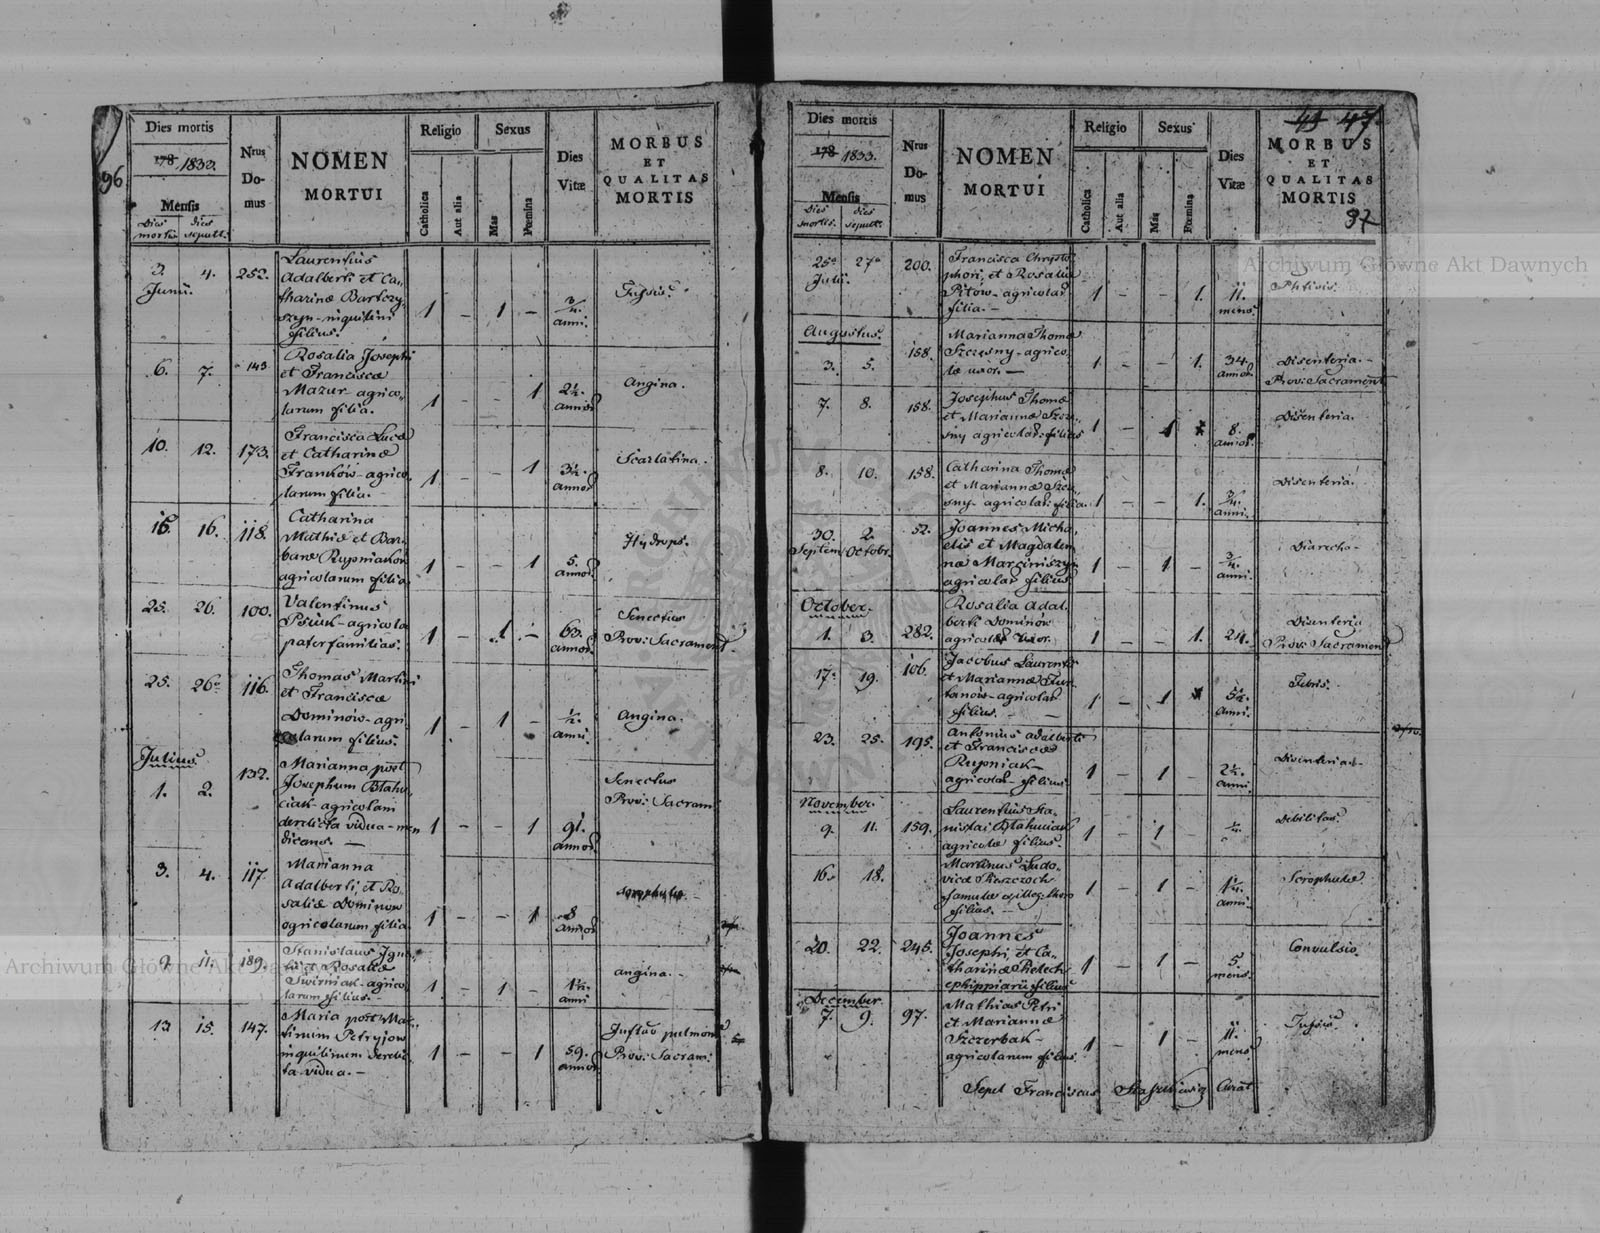 96
Dies mortis
178 1833.
Mensis
Dies mortis
dies sepult.
Nrus Domus
NOMEN
MORTUI
Religio
Catholica
Aut alia
Sexus
Mas
Fœmina
Dies
Vitæ
MORBUS
ET
QUALITAS
MORTIS
3. 4. 252.
Junii.
Laurentius
Adalberti et Ca-
tharinæ Bartczy-
szyn - inquilini
filius.
1 - 1 -
3/4 anni.
Tussis.
6. 7. 143
Rosalia Josephi
et Franciscæ
Mazur - agrico-
larum filia.
1 - - 1
2½ annor
Angina.
10. 12. 173.
Francisca Lucæ
et Catharinæ
Franków - agrico-
larum filia. -
1 - - 1
3½ annor
Scarlatina.
16. 118.
Catharina
Mathiæ et Bar-
baræ
agricolarum filia
1 - - 1
5. annor.
Hydrops.
25. 26. 100.
Valentinus
Psiuk - agricola
paterfamilias.
1 - 1 -
63. annor
Senectus
Prov: Sacrament.
25. 26. 116.
Thomas Martini
et Franciscæ
Dominów - agri-
colarum filius.
1 - 1 -
½ anni.
Angina.
Julius
1. 2. 132.
Marianna post
Josephum Błahu-
ciak - agricolam
derelicta vidua - men
dicans. -
1 - - 1
91. annor
Senectus
Prov: Sacram
3. 4. 117
Marianna
Adalberti, et Ro-
saliæ Dominow
agricolarum filia
1 - - 1
8 annor
9. 11. 189.
Stanislaus Igna-
tii et Rosaliæ
Swirniak - agrico-
larum filius. -
1 - 1 -
1½ anni
angina. -
13 15. 147.
Maria post Mar-
tinum Petryjow
inquilinum derelic-
ta vidua. -
1 - - 1
59. annor
Prov: Sacram:
49 47.
97
Dies mortis
178 1833.
Mensis
Dies mortis.
dies sepult.
Nrus Domus
NOMEN
MORTUI
Religio
Catholica
Aut alia
Sexus
Mas
Fœmina
Dies
Vitæ
MORBUS
ET
QUALITAS
MORTIS
25a 27a 200.
Julii.
Francisca Chrysto-
phori, et Rosaliæ
Pitów - agricolar
filia. -
1 - - 1.
11. mens.
Phtisis.
Augustus.
3. 5. 158.
Marianna Thomæ
Szczesny - agrico-
læ uxor. -
1 - - 1.
34. annor
Disenteria. -
Prov: Sacrament
7. 8. 158.
Josephus Thomæ
et Mariannæ Szcze-
sny agricolar: filius
1 - 1
8. annor
Disenteria.
8. 10. 158.
Catharina Thomæ
et Mariannæ Szcze-
sny - agricolar: filia.
1 - - 1.
¾ anni.
Disenteria.
30. 2. 52.
Septem Octobr.
Joannes Micha-
elis et Magdale-
næ Marciniszyn
agricolar filius
1 - 1 -
¾ anni.
October.
1. 3. 282.
Rosalia Adal-
berti Dominów
agricolæ uxor.
1 - - 1.
24.
Prov: Sacrament
17. 19. 106.
Jacobus Laurentii
et Mariannæ
agricolar
filius. - -
1 - 1
5½ anni.
Febris.
23. 25. 195.
Antonius Adalberti
et Franciscæ
Rupniak -
agricolar - filius.
1 - 1 -
2½ anni.
Disenteria. -
November.
9. 11. 159.
Laurentius Sta-
nislai Błahuciak
agricolæ filius.
1 - 1 -
Debilitas.
16. 18.
Martinus Ludo-
vicæ
famulæ ex illeg: thoro
filius. -
1 - 1 -
1½ anni.
Scrophulæ
20. 22. 245.
Joannes
Josephi, et Ca-
tharinæ Pietech
ephippiarii filius
1 - 1 -
5. mens.
Convulsio.
December.
7. 9. 97.
Mathias Petri
et Mariannæ
Szczerbak -
agricolarum filius.
1 - 1 -
11. mens
Tussis.
Sepel Franciscus Curat
Archiwum Główne Akt Dawnych
Archiwum Główne Akt Dawnych